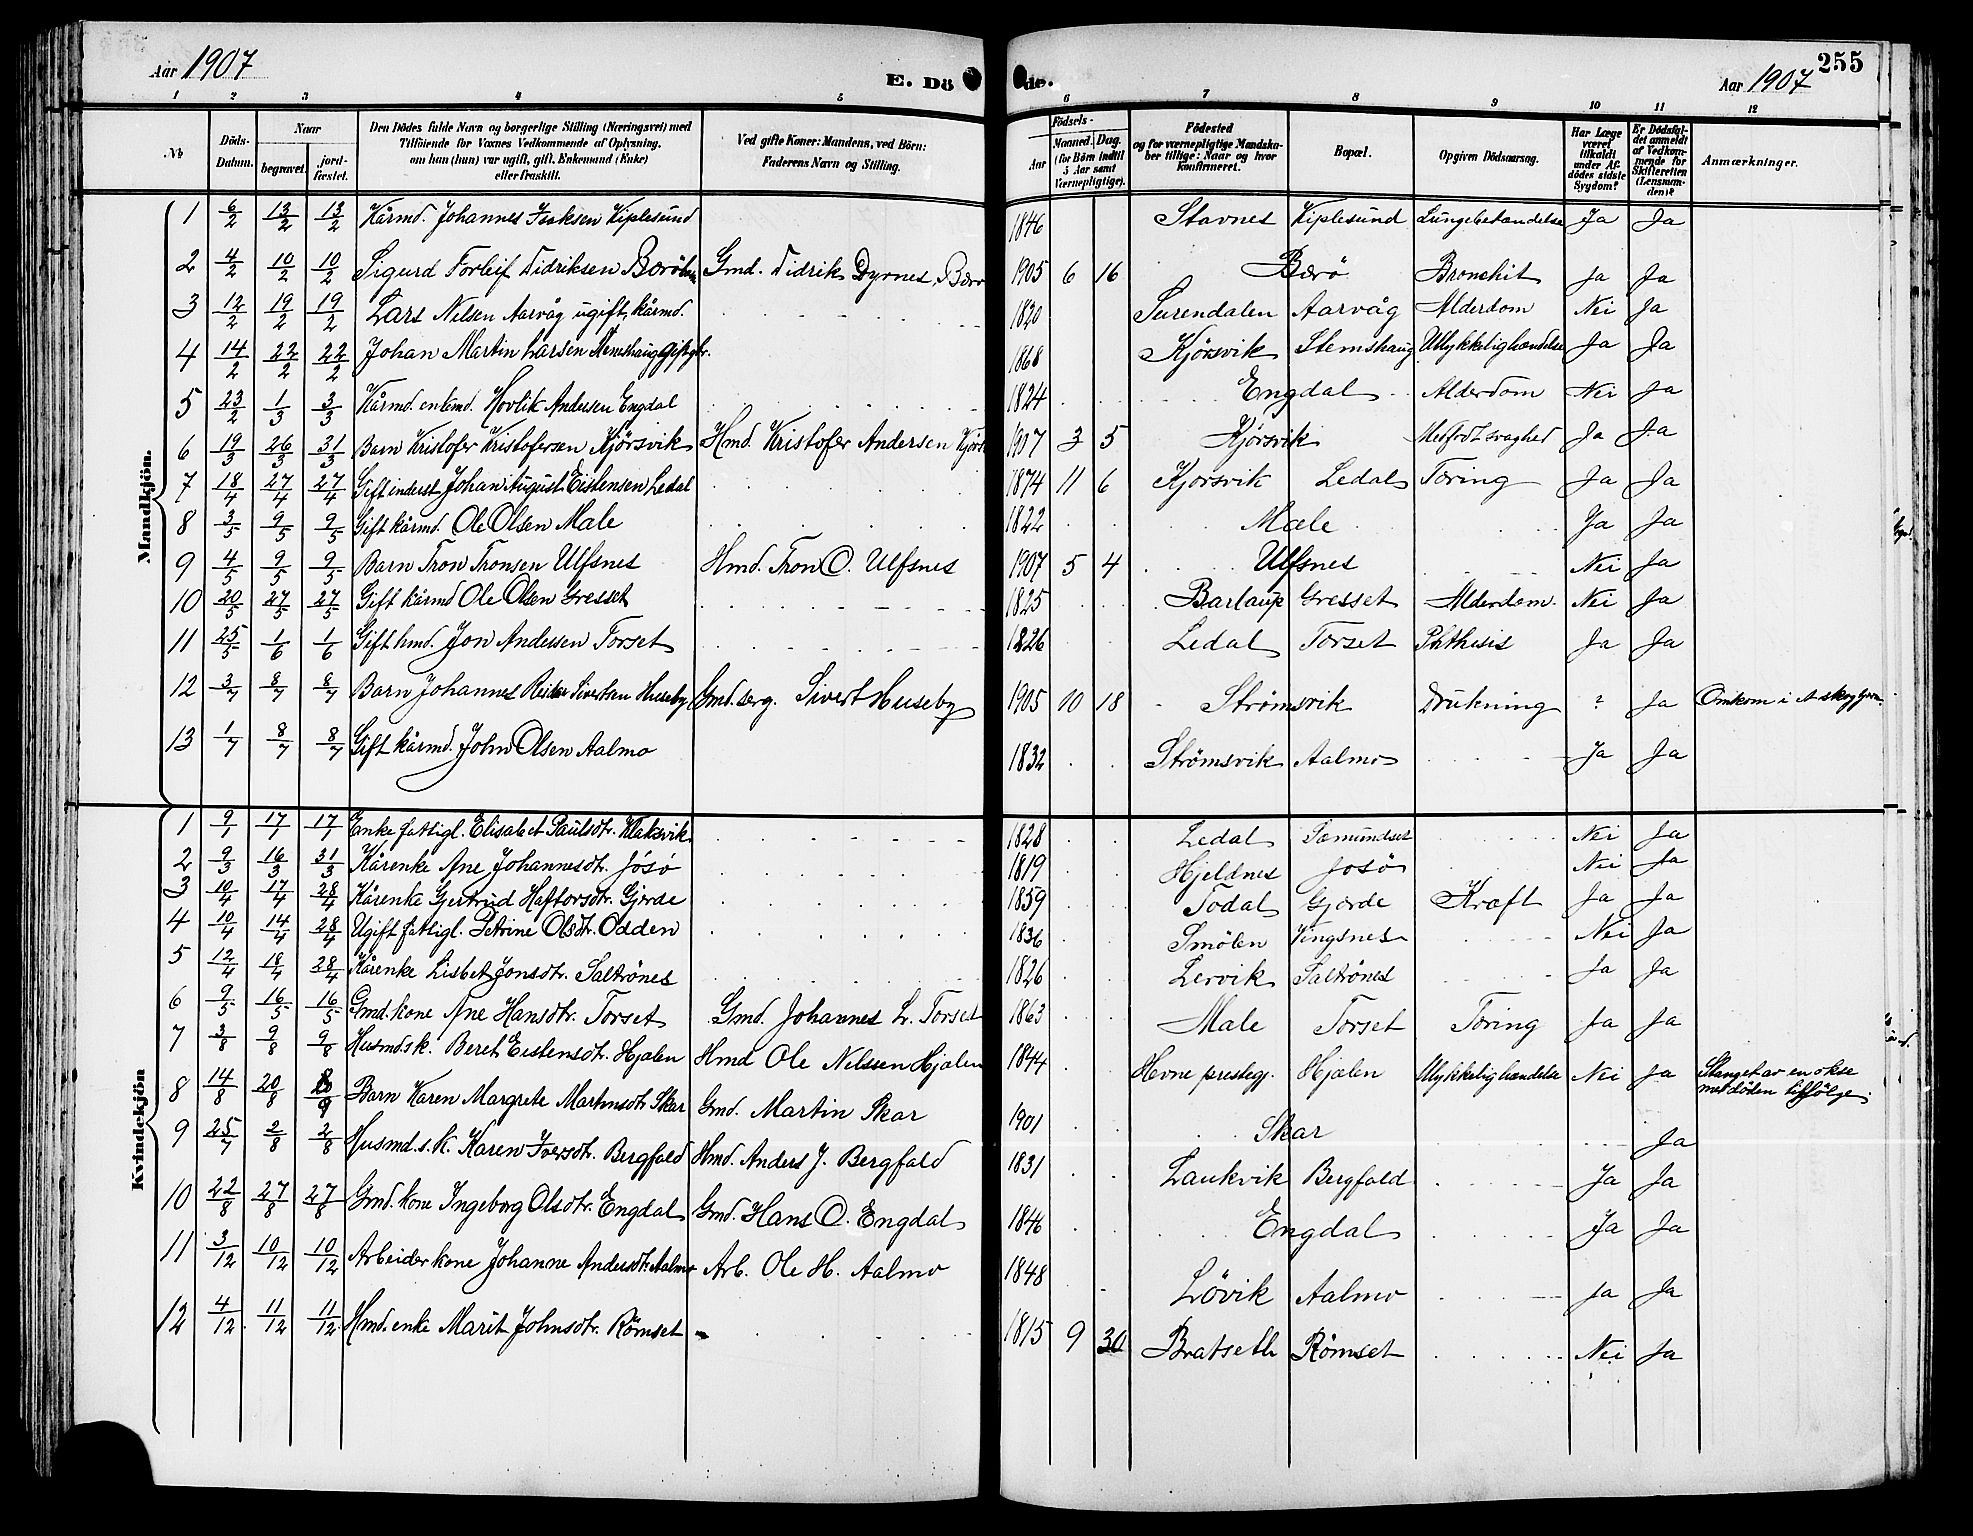 Aar 1907
E. Dö de.
Aar 1907
255
1 2 3 4 5 6 7 8 9 10 11 12
No
Döds-Datum.
Naar
begravet.
jord-fæstet.
Den Dödes fulde Navn og borgerlige Stilling (Næringsvei) med Tilföiende for Voxnes Vedkommende af Oplysning, om han (hun) var ugift, gift, Enkemand (Enke) eller fraskilt.
Ved gifte Koner: Mandens, ved Börn: Faderens Navn og Stilling.
Födsels-
Aar
Maaned. Dag.
(for Börn indtil 5 Aar samt Værnepligtige).
Födested og for værnepligtige Mandskaber tillige: Naar og hvor Konfirmeret.
Bopæl.
Opgiven Dödsaarsag.
Har Læge været tilkaldt under Afdödes sidste Sygdom?
Er Dödsfaldet anmeldt af Vedkommende for Skifteretten (Lensmanden)?
Anmærkninger.
Mandkjön.
1 6/2 13/2 13/2 Kårmd. Johannes Isaksen Kiplesund 1846 Stavnes Kiplesund Lungebetændelse Ja Ja
2 4/2 10/2 10/2 Sigurd Torleif Didriksen Bærö Gmd. Didrik Dyrnes, Bærö 1905 6 16 Bærö Bronchit Ja Ja
3 12/2 19/2 19/2 Lars Nilsen Aarvåg ugift, kårmd. 1820 Surendalen Aarvåg Alderdom Nei Ja
4 14/2 22/2 22/2 Johan Martin Larsen Stemshaug Gift 1868 Kjörsvik Stemshaug Ulykkelighændelse Ja Ja
5 23/2 1/3 3/3 Kårmd. enkemd. Hovlik Andersen Engdal 1824 Engdal Alderdom Nei Ja
6 19/3 26/3 31/3 Barn Kristofer Kristofersen Kjörsvik Hmd. Kristofer Andersen 1907 3 5 Kjörsvik Medfödt svaghed Ja Ja
7 18/4 27/4 27/4 Gift inderst Johan August Eistensen Ledal 1874 11 6 Kjorsvik Ledal Tæring Ja Ja
8 3/5 9/5 9/5 Gift kårmd. Ole Olsen Mæle 1822 Mæle Ja Ja
9 4/5 9/5 9/5 Barn Tron Tronsen Ulfsnes Hmd. Tron O. Ulfsnes 1907 5 4 Ulfsnes Nei Ja
10 20/5 27/5 27/5 Gift kårmd Ole Olsen Gresset 1825 Barlaup Gresset Alderdom. Nei Ja
11 25/5 1/6 1/6 Gift hmd. Jon Andersen Torset 1826 Ledal Torset Phthisis Ja Ja
12 3/7 8/7 8/7 Barn Johannes Sivertsen Huseby Gmd. serg. Sivert Huseby 1905 10 18 Strömsvik Drukning ? Ja Omkom i
13 1/7 8/7 8/7 Gift kårmd. John Olsen Aalmo 1832 Strömsvik Aalmo Ja Ja
Kvindekjön
1 9/1 17/1 17/1 Enke fattigl. Elisabet Paulsdtr. Klaksvik 1828 Ledal Sæmundset Nei Ja
2 9/3 16/3 31/3 Kårenke Ane Johannesdtr. Jösö 1819 Hjeldnes Josö Nei Ja
3 10/4 17/4 28/4 Kårenke Gjertrud Haftorsdtr. Gjerde 1859 Todal Gjærde Kræft Ja Ja
4 10/4 14/4 28/4 Ugift fattigl. Petrine Olsdtr. Odden 1836 Smölen Vingsnes Nei Ja
5 12/4 18/4 28/4 Kårenke Lisbet Jonsdtr. Saltrönes 1826 Lervik Saltrönes Ja Ja
6 9/5 16/5 16/5 Gmd. kone Ane Hansdtr. Torset Gmd. Johannes L. Torset 1863 Mæle Torset Tæring Ja Ja
7 3/8 9/8 9/8 Husmdsk. Beret Eistensdtr. Hjalen Hmd Ole Nelssen Hjalen 1844 Hevne prestegj. Hjalen Ulykkelighændelse Nei Ja Stanget av en okse met döden tilfölge.
8 14/8 20/8 8/9 Barn Karen Margrete Martinsdtr Skar Gmd. Martin Skar 1901 Skar Ja
9 25/7 2/8 2/8 Husmd.s.k. Karen Iversdtr. Bergfald Hmd. Anders J. Bergfald 1831 Laukvik Bergfald Ja Ja
10 22/8 27/8 27/8 Gmd. kone Ingeborg Olsdtr. Engdal Gmd. Hans O. Engdal 1846 Engdal Ja Ja
11 3/12 10/12 10/12 Arbeider kone Johanne Andersdtr. Aalmo Arb. Ole H. Aalmo 1848 Lövik Aalmo Ja Ja
12 4/12 11/12 11/12 Hmd. enke Marit Johnsdtr. Römset 1815 9 30 Bratseth Römset Nei Ja